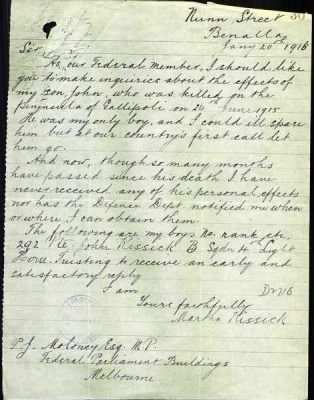 Nunn Street
Benalla
Jany 20th 1916
Sir
As our Federal Member, I should like
you to make inquiries about the effects of
my son, John, who was killed on the
peninsula of Gallipoli on 24th June 1915.
He was my only boy, and I could ill spare
him but at our country's first call let
him go.
And now, though so many months
have passed since his death I have
never received any of his personal effects
nor has the Defence Dept. notified me when
or where I can obtain them.
The following are my boy's No. rank etc.
292 Pte. John Kissick B Sqdn 4th Light
Horse. Trusting to receive an early and
satisfactory reply
I am
Yours faithfully
Martha Kissick
P. J. Moloney Esq. M.P.
Federal Parliament Buildings
Melbourne